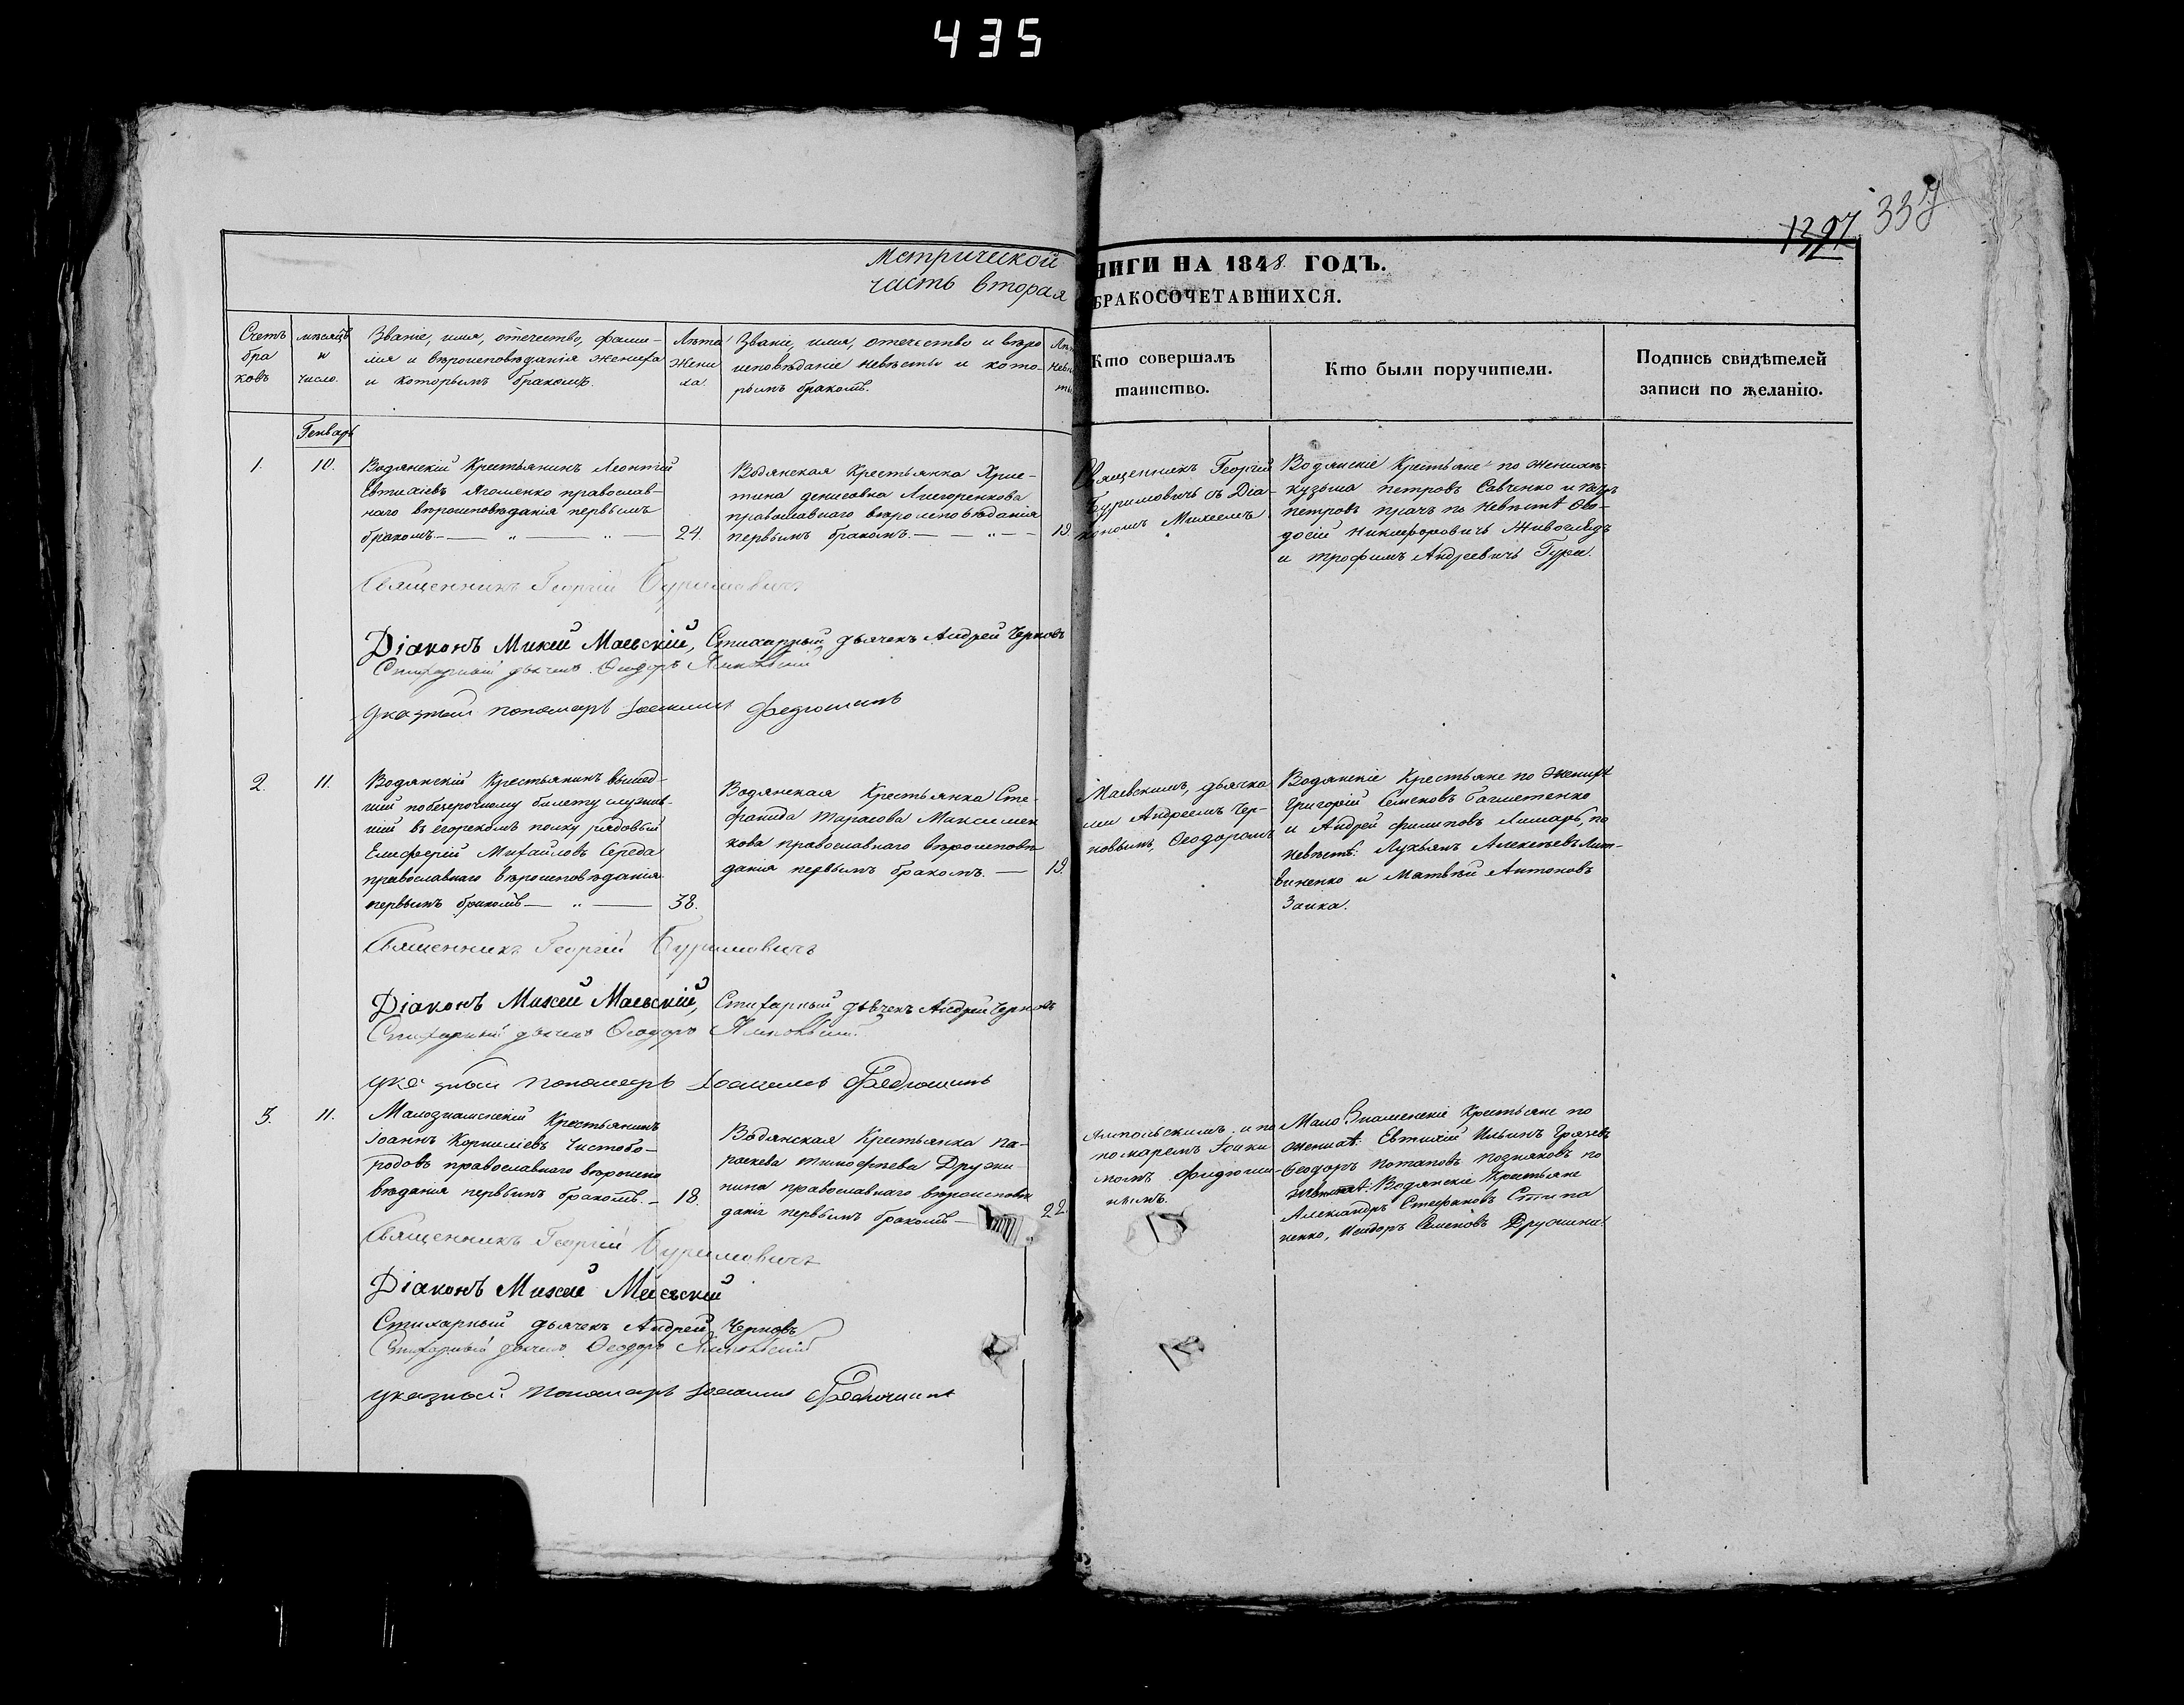 435
1397 337
Метрической
часть вторая
НИГИ НА 1848 ГОДЪ.
БРАКОСОЧЕТАВШИХСЯ.
Счетъ
бра
ковъ
мѣсяцъ
и
число.
Званіе, имя, отечество, фами-
лія и вѣроисповѣданія жениха
и которымъ бракомъ.
Лѣта
жени
ха.
Званіе, имя, отечество и вѣро
исповѣданіе невѣсты и кото-
рымъ бракомъ.
Лѣт
невѣ
ты
Кто совершалъ
таинство.
Кто были поручители.
Подпись свидѣтелей
записи по желанію.
Генварь
1.
10.
Водянскій Крестьянинъ Леонтій
Евтихіевъ Ягоменко православ-
наго вѣроисповѣданія первымъ
бракомъ. — „ — „ —
24.
Водянская Крестьянка Хрис-
тина денисовна
православнаго вѣроисповѣданія
первымъ бракомъ. — „ —
19.
Священникъ Георгій
Буримовичь съ Діа-
кономъ Михеемъ
Водянскіе Крестьяне по жениху
кузьма петровъ Савченко и
петровъ прачъ по невѣстѣ Ѳео-
досій никифоровичь Живоглядъ
и трофимъ Андреевичь Гура.
Священникъ Георгій Буримовичъ
Діаконъ Михей Маевскій, Стихарный дьячекъ Андрей Черновъ
Стихарный дьячекъ Ѳеодоръ Ямпольскій
указный пономарь Іоакимъ Федюшинъ
2.
11.
Водянскій Крестьянинъ вышед-
шій по безсрочному билету служив-
шій въ егорскомъ полку рядовый
Елифѳерій Михайловъ Середа
православнаго вѣроисповѣданія
первымъ бракомъ — „ —
38.
Водянская Крестьянка Сте-
фанида тарасова Максимен
кова православнаго вѣроисповѣ
данія первымъ бракомъ. —
19.
Маевскимъ, дьячка
ми Андреемъ Чер-
новымъ, Ѳеодоромъ
Водянскіе Крестьяне по жениху
Григорій Семеновъ Багметенко
и Андрей филиповъ Лимарь, по
невѣстѣ: Лукьянъ Алексѣевъ Лит-
виненко и Матвѣй Антоновъ
Заика.
Священникъ Георгій Буримовичъ
Діаконъ Михей Маевскій, Стихарный дьячекъ Андрей Черновъ
Стихарный дьячекъ Ѳеодоръ Ямпольскій
указный пономарь Іоакимъ Федюшинъ
3.
11.
Малознаменскій Крестьянинъ
іоаннъ Корниліевъ Чистобо-
родовъ православнаго вѣроиспо
вѣданія первымъ бракомъ. —
18.
Водянская Крестьянка па-
раскева тимофѣева Дружи-
нина православнаго вѣроисповѣ
данія первымъ бракомъ —
22.
Ямпольскимъ и по
номаремъ Іоаки
момъ Федюши-
нымъ.
Мало Знаменскіе Крестьяне по
жениху: Евтихій Ильинъ Грязевъ
Ѳеодоръ потаповъ позняковъ по
невѣстѣ: Водянскіе Крестьяне
Александръ Стефановъ Стипа
ненко, исидоръ Семеновъ Дружини
Священникъ Георгій Буримовичъ
Діаконъ Михей Маевскій
Стихарный дьячекъ Андрей Черновъ
Стихарный дьячекъ Ѳеодоръ Ямпольскій
указный пономарь Іоакимъ Федюшинъ